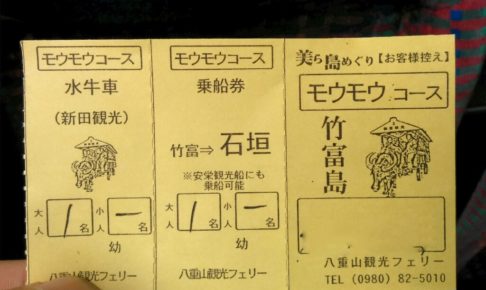 モウモウコース
水牛車
(新田観光)
大人 1名 小人 一名
幼
八重山観光フェリー
モウモウコース
乗船券
竹富⇒石垣
※安栄観光船にも
乗船可能
大人 1名 小人 一名
幼
八重山観光フェリー
美ら島めぐり【お客様控え】
モウモウコース
竹富島
八重山観光フェリー
TEL (0980) 82-5010